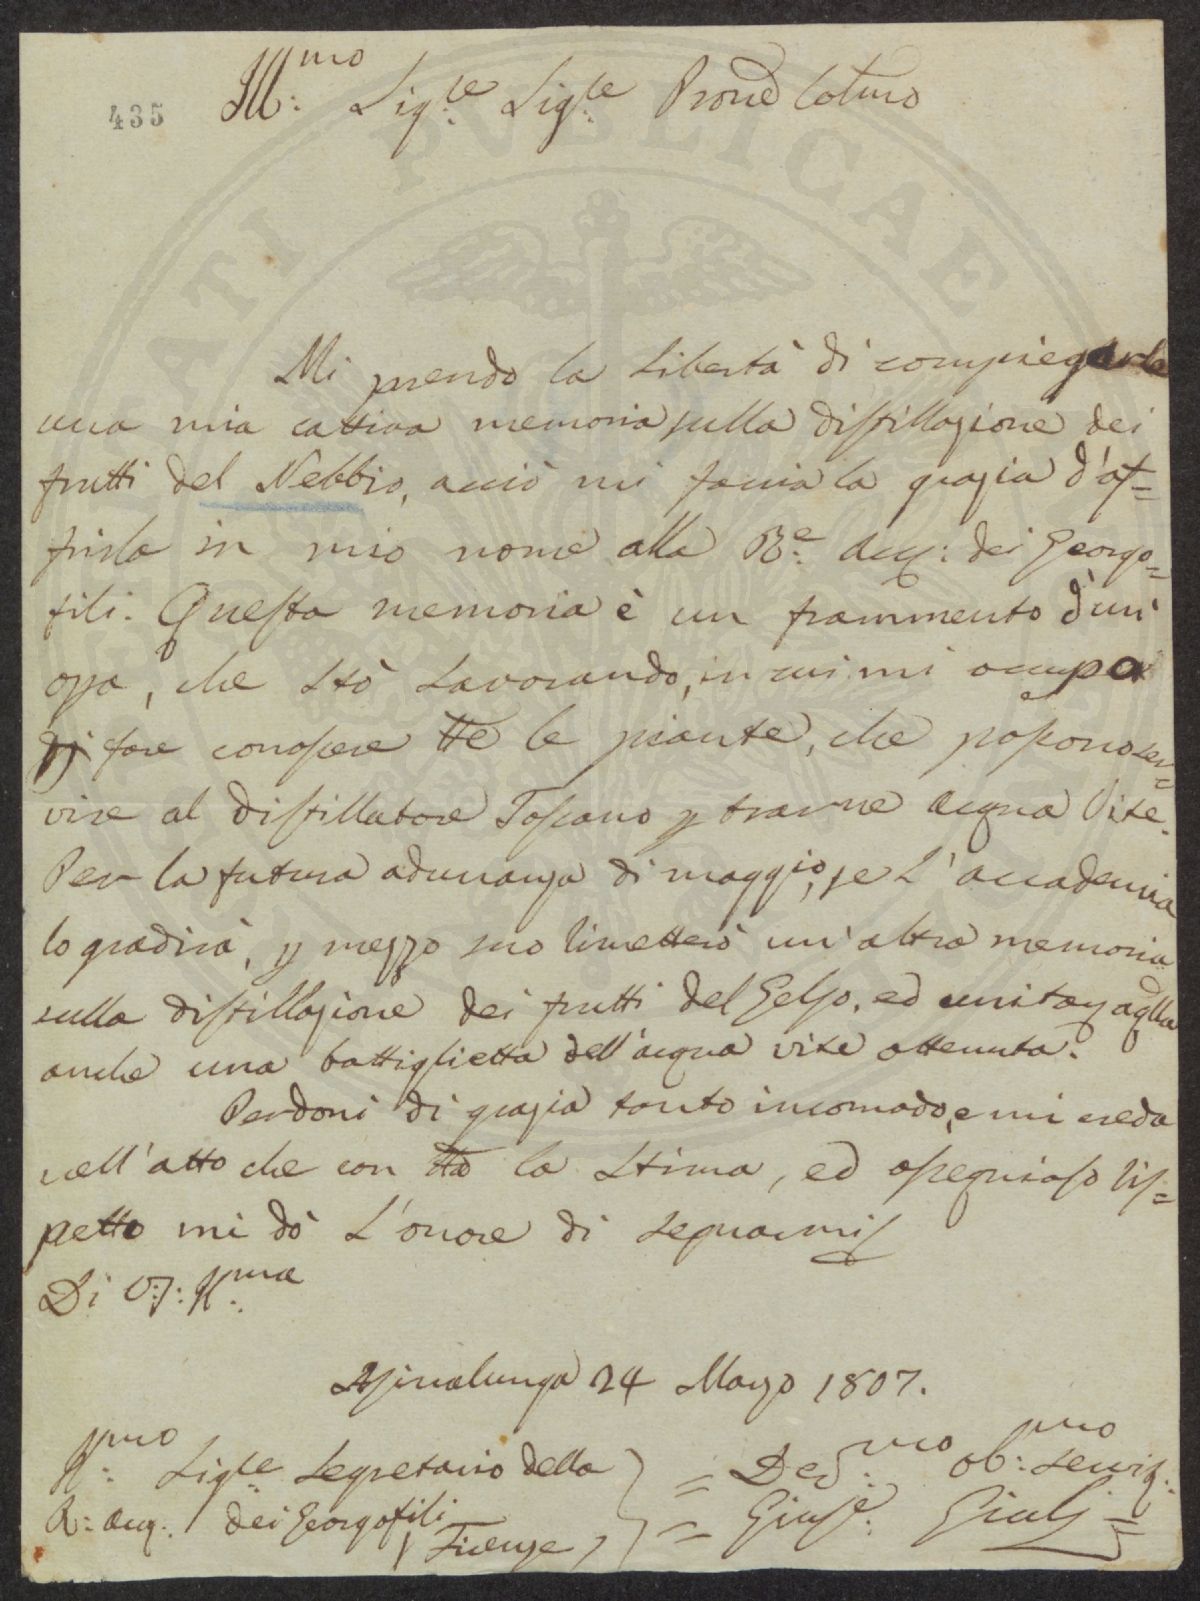 435
Ill.mo Sig.re Sig.re Prone Colmo
Mi prendo la libertà di compiegarle
una mia cattiva memoria sulla distillazione dei
frutti del Nebbio, acciò mi faccia la grazia d'of=
frirla in mio nome alla R.e Acc: dei Georgo=
fili. Questa memoria è un frammento d'un'
opa, che stò lavorando, in cui mi occupo
di fare conoscere tte le piante, che possono ser=
vire al distillatore Toscano p trarne acqua Vite.
Per la futura adunanza di maggio, se l'accademia
lo gradirà, p mezzo suo rimetterò un'altra memoria
sulla distillazione dei frutti del Gelso, ed unita
anche una bottiglietta dell'acqua vite ottenuta.
Perdoni di grazia tanto incomodo, e mi creda
nell'atto che con tta la stima, ed ossequioso ris=
petto mi dò l'onore di segnarmi
Di V: S: Ill.ma
Asinalunga 24 Marzo 1807.
Ill.mo Sig.re Segretario della = Dev.mo ob.mo servit.:
R: acc: dei Georgofili = Gius.e: Giulj
Firenze